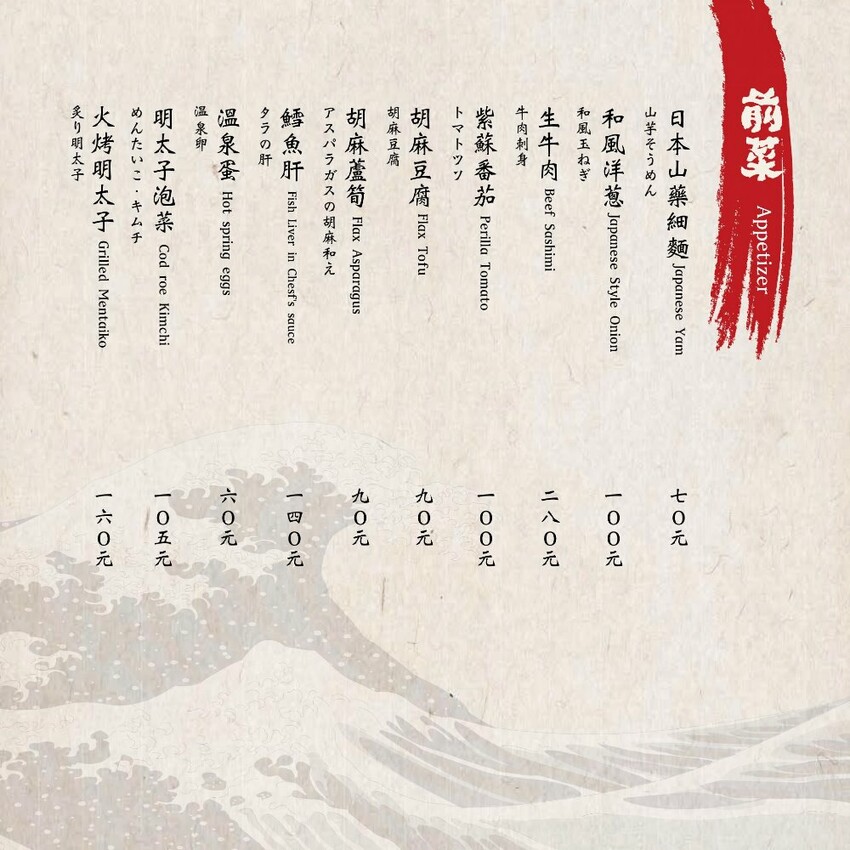 前菜 Appetizer
日本山藥細麵 Japanese Yam
七〇元
山芋そうめん
和風洋蔥 Japanese Style Onion
一〇〇元
和風玉ねぎ
生牛肉 Beef Sashimi
二八〇元
牛肉刺身
紫蘇番茄 Perilla Tomato
一〇〇元
トマトツソ
胡麻豆腐 Flax Tofu
九〇元
胡麻豆腐
胡麻蘆筍 Flax Asparagus
九〇元
アスパラガスの胡麻和え
鱈魚肝 Fish Liver in Chesf's sauce
一四〇元
タラの肝
溫泉蛋 Hot spring eggs
六〇元
温泉卵
明太子泡菜 Cod roe Kimchi
一〇五元
めんたいこ・キムチ
火烤明太子 Grilled Mentaiko
一六〇元
炙り明太子